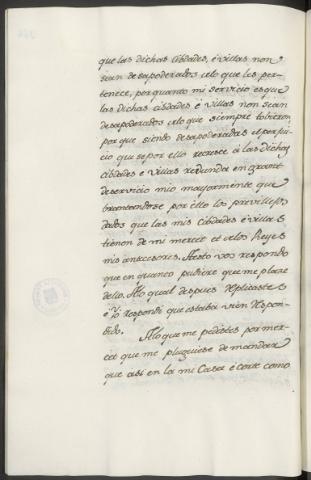 que las dichas cibdades, é villas non
sean desapoderados de lo que les per-
tenece, por quanto mi servicio es que
las dichas cibdades é villas non sean
desapoderados de lo que siempre tobieron
porque siendo desapoderadas el perjui-
cio que se por ello recresce á las dichas
cibdades é villas redunda en grant
deservicio mio mayormente que
brantandose por ello los previllejos
dados que las mis cibdades é villas
tienen de mi merced et de los Reyes
mis antecesores. A esto vos respondo
que en quanto pudiere que me place
dello. A lo qual despues replicastes
é Yo respondi que estaba vien respon-
dido.
A lo que me pedistes por mer-
cet que me pluguiese de mandar
que asi en la mi Casa é corte como